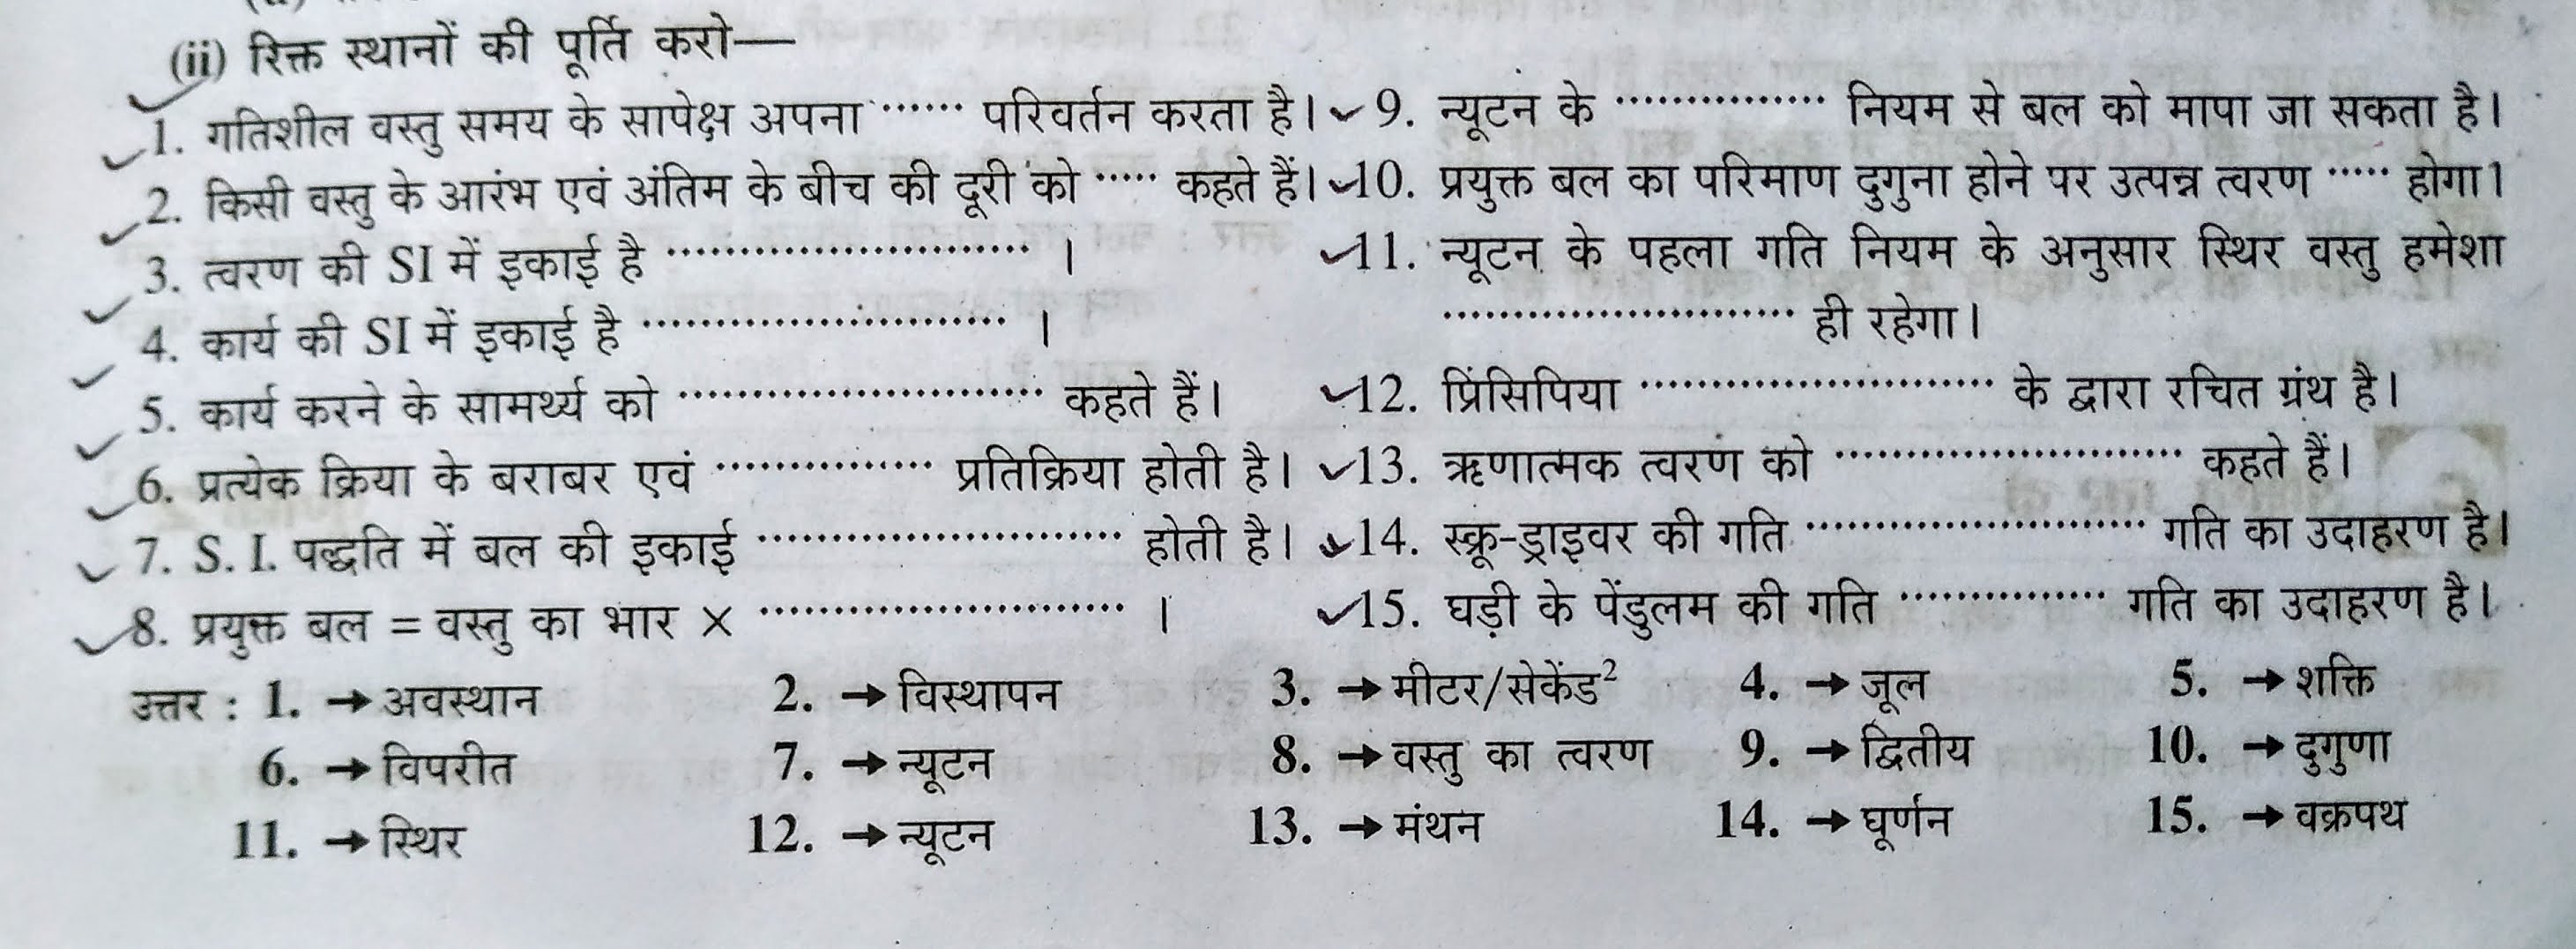 (ii) रिक्त स्थानों की पूर्ति करो—
1. गतिशील वस्तु समय के सापेक्ष अपना ······ परिवर्तन करता है।
2. किसी वस्तु के आरंभ एवं अंतिम के बीच की दूरी को ····· कहते हैं।
3. त्वरण की SI में इकाई है ························· ।
4. कार्य की SI में इकाई है ························· ।
5. कार्य करने के सामर्थ्य को ························· कहते हैं।
6. प्रत्येक क्रिया के बराबर एवं ··············· प्रतिक्रिया होती है।
7. S. I. पद्धति में बल की इकाई ························· होती है।
8. प्रयुक्त बल = वस्तु का भार × ························· ।
9. न्यूटन के ··············· नियम से बल को मापा जा सकता है।
10. प्रयुक्त बल का परिमाण दुगुना होने पर उत्पन्न त्वरण ····· होगा।
11. न्यूटन के पहला गति नियम के अनुसार स्थिर वस्तु हमेशा
························· ही रहेगा।
12. प्रिंसिपिया ························· के द्वारा रचित ग्रंथ है।
13. ऋणात्मक त्वरण को ························· कहते हैं।
14. स्क्रू-ड्राइवर की गति ························· गति का उदाहरण है।
15. घड़ी के पेंडुलम की गति ··············· गति का उदाहरण है।
उत्तर : 1. → अवस्थान 2. → विस्थापन 3. → मीटर/सेकेंड² 4. → जूल 5. → शक्ति
6. → विपरीत 7. → न्यूटन 8. → वस्तु का त्वरण 9. → द्वितीय 10. → दुगुणा
11. → स्थिर 12. → न्यूटन 13. → मंथन 14. → घूर्णन 15. → वक्रपथ